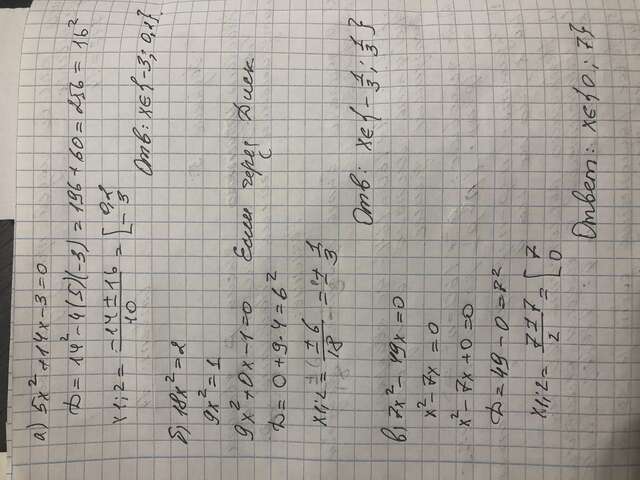 а) 5x² + 14x - 3 = 0
D = 14² - 4(5)(-3) = 196 + 60 = 256 = 16²
x1;2 = (-14 ± 16)/10 = [0,2 -3
Отв: x∈{-3; 0,2}
б) 18x² = 2
9x² = 1
9x² + 0x - 1 = 0 Если через Диск
D = 0 + 9·4 = 6²
x1;2 = ±6/18 = ± 1/3
Отв: x∈{-1/3; 1/3}
в) 7x² - 49x = 0
x² - 7x = 0
x² - 7x + 0 = 0
D = 49 - 0 = 7²
x1;2 = (7±7)/2 = [7 0
Ответ: x∈{0; 7}